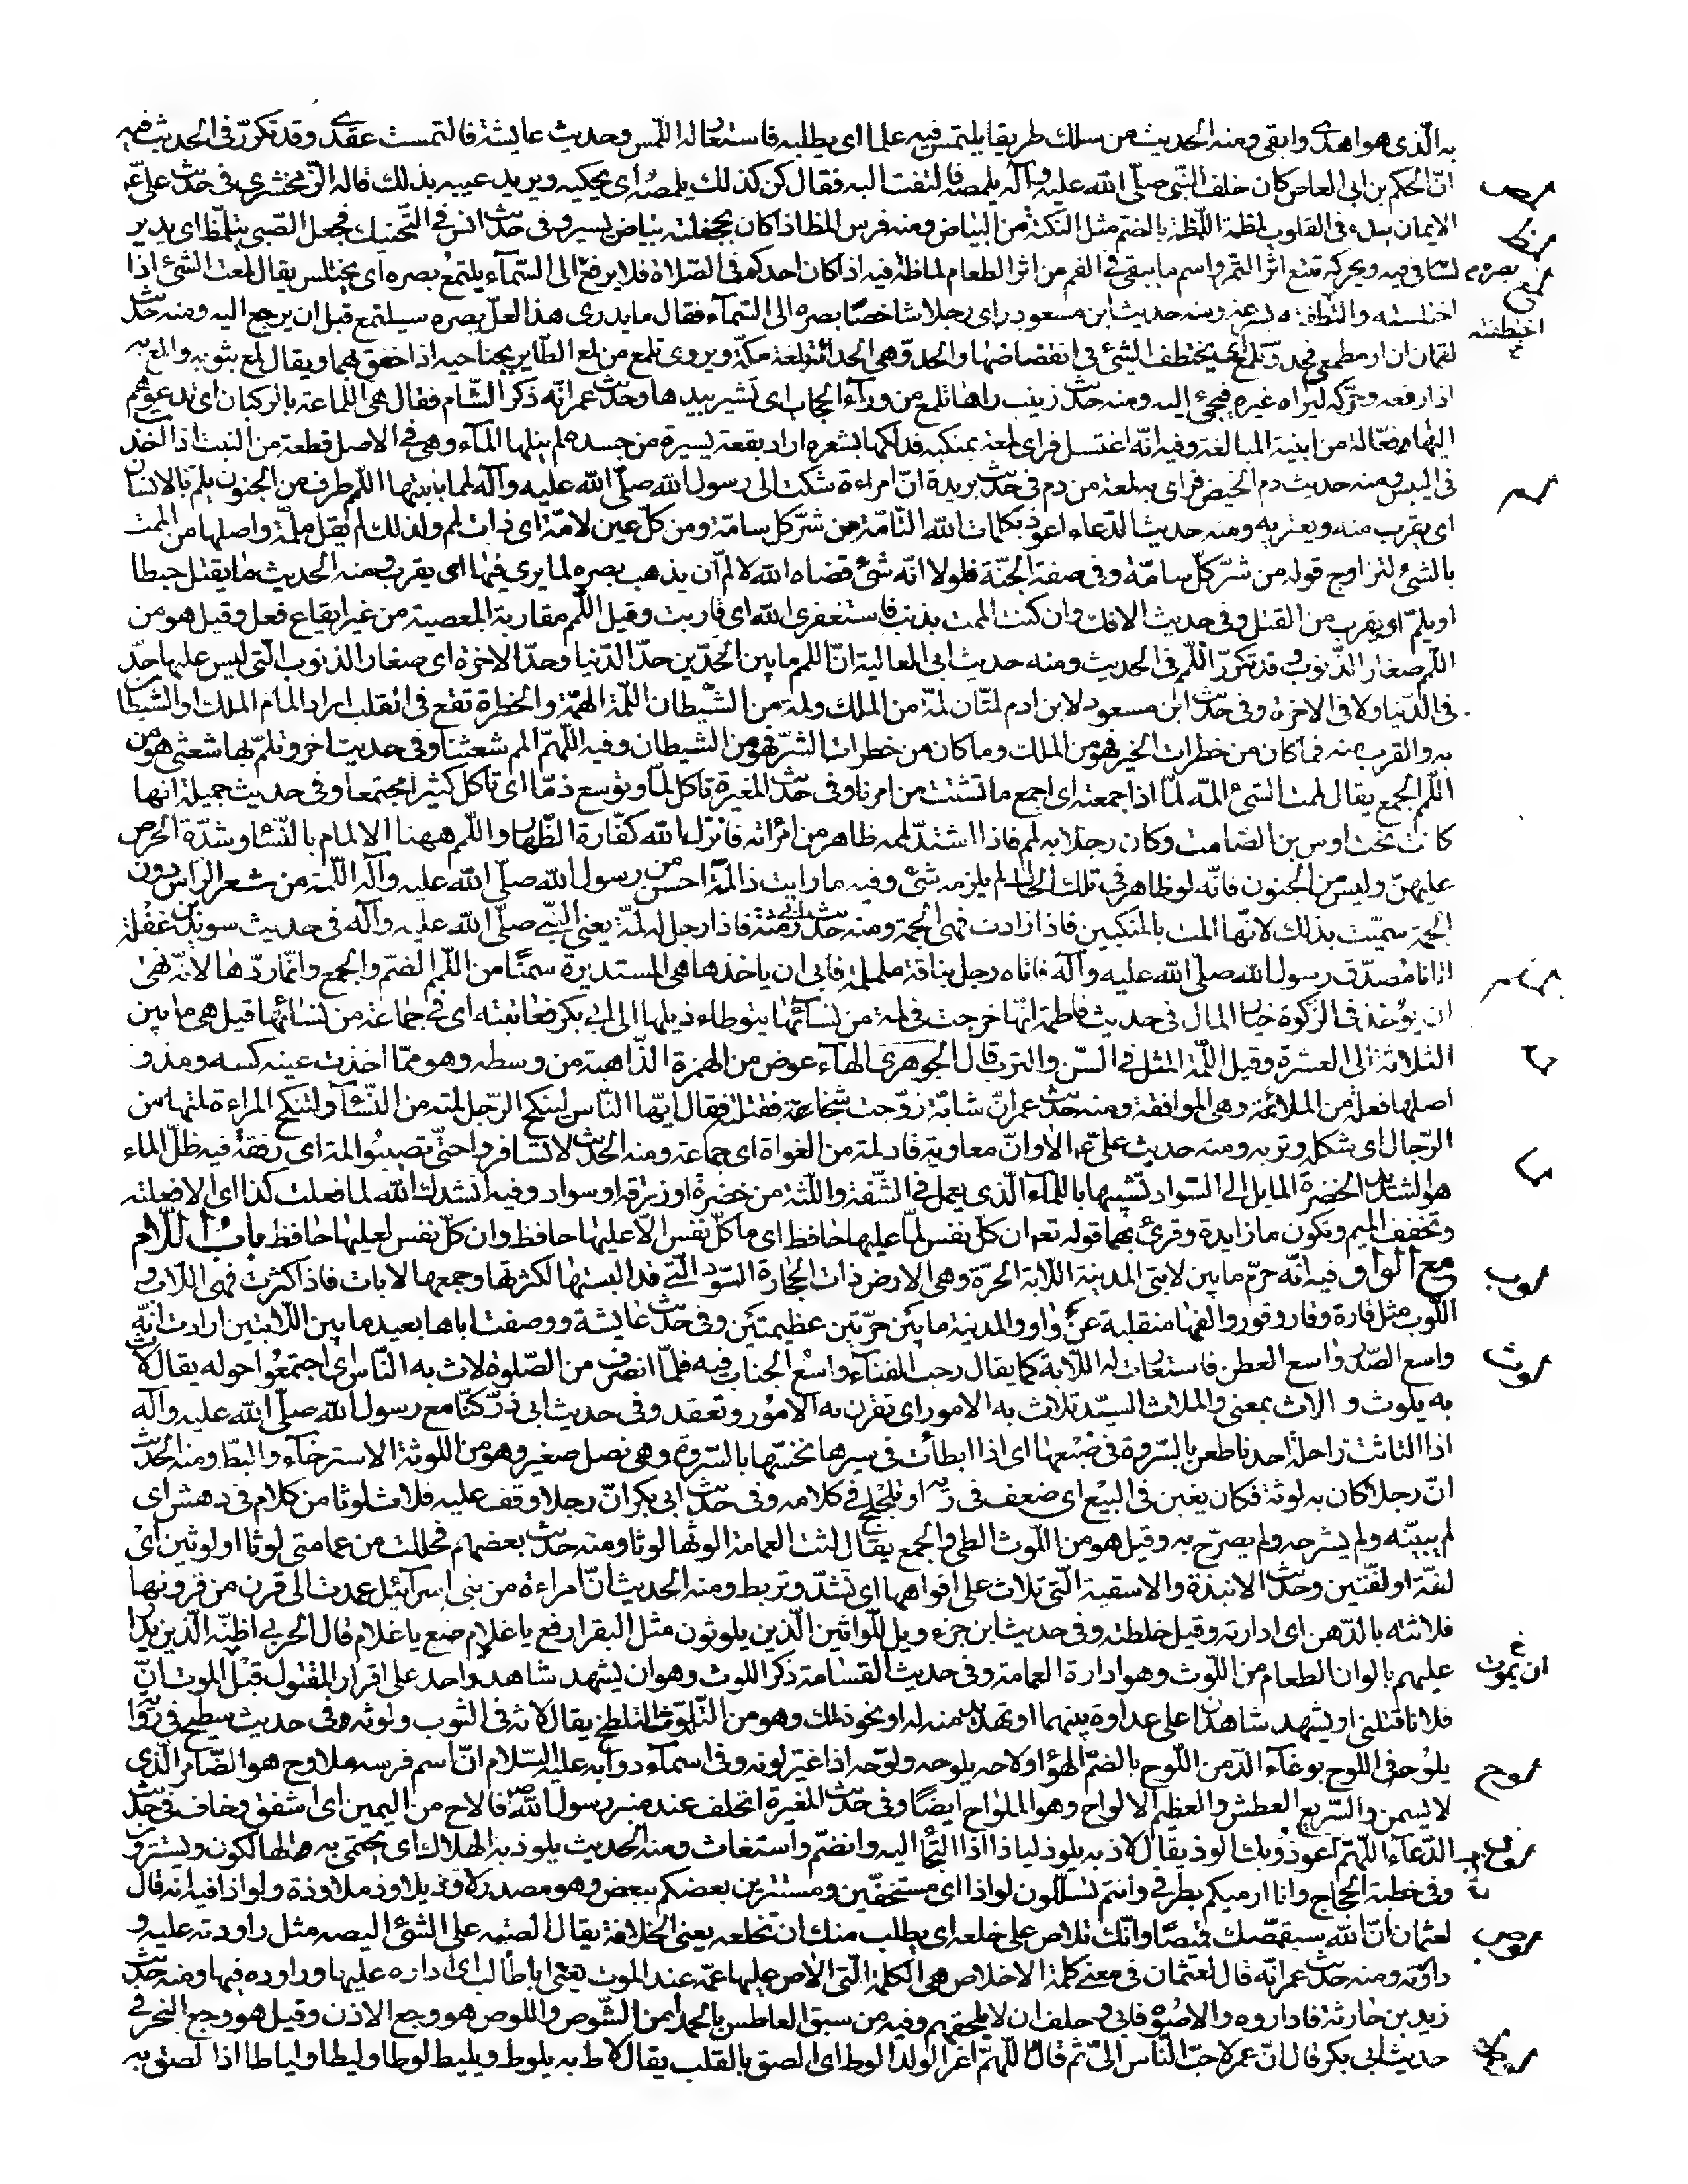 به الّذى هو اهدى وابقى ومنه الحديث من سلك طريقا يلتمس فيه علما اى يطلبه فاستعار له اللمس وحديث عايشة فالتمست عقدى وقد تكرّر فى الحديث فيه
لمص انّ الحكم بن ابى العاص كان خلف النّبى صلّى الله عليه وآله يلمصه فالتفت اليه فقال كن كذلك يلمصه اى يحكيه ويريد عيبه بذلك قاله الزّمخشرى فى حديث علىّ ع
لمظ الايمان يبدء فى القلوب لمظة اللّمظة بالضمّ مثل النكتة من البياض ومنه فرس المظ اذا كان بجحفلته بياض يسير وفى حديث انس فى التّحنيك فجعل الصّبى يتلمّظ اى يدير
لمع لسانه فى فيه ويحركه يتتبع اثر التّمر واسم ما يبقى فى الفم من اثر الطعام لماظة فيه اذا كان احدكم فى الصّلاة فلا يرفع بصره الى السّمآء يلتمع بصره اى يختلس يقال لمعت الشئ اذا
اختلسته واختطفته بسرعة ومنه حديث ابن مسعود راى رجلا شاخصًا بصره الى السّمآء فقال ما يدرى هذا لعلّ بصره سيلتمع قبل ان يرجع اليه ومنه حديث
لقمان ان ار مطمعى فحدوّ تلمّع اى يختطف الشئ فى انقضاضها والحدوّ هى الحدأة بلغة مكّة ويروى تلمع من لمع الطّاير بجناحيه اذا خفق بهما ويقال لمع بثوبه والمع به
اذا رفعه وحرّكه ليراه غيره فيجئ اليه ومنه حديث زينب راها تلمع من ورآء الحجاب اى تشير بيدها وحديث عمر انّه ذكر الشّام فقال هى اللماعة بالركبان اى تدعوهم
اليها وفعّالة من ابنية المبالغة وفيه انّه اغتسل فراى لمعة بمنكبه فدلكها بشعره اراد بقعة يسيرة من جسده لم ينلها المآء وهى فى الاصل قطعة من النبت اذا اخذت
لمم فى اليبس ومنه حديث دم الحيض فراى به لمعة من دم فى حديث بريدة انّ امراءة شكت الى رسول الله صلّى الله عليه وآله لمما بابنتها اللّمم طرف من الجنون يلمّ بالانسان
اى يقرب منه ويعتريه ومنه حديث الدّعاء اعوذ بكلمات الله التّامّة من شرّ كل سامّة ومن كلّ عين لامّة اى ذات لمم ولذلك لم يقل ملمّة واصلها من الممت
بالشئ لتزاوج قوله من شرّ كلّ سامّة وفى صفة الجنّة فلولا انّه شئ قضاه الله لالمّ ان يذهب بصره لما يرى فيها اى يقرب ومنه الحديث ما يقتل حبطا
او يلمّ اى يقرب من القتل وفى حديث الافك وان كنت الممت بذنب فاستغفرى الله اى قاربت وقيل اللّمم مقاربة المعصية من غير ايقاع فعل وقيل هو من
اللّمم صغار الذّنوب وقد تكرّر اللّمم فى الحديث ومنه حديث ابى العالية انّ اللمم ما بين الحدّين حدّ الدّنيا وحدّ الاخرة اى صغار الذنوب الّتى ليس عليها حدّ
فى الدّنيا ولا فى الاخرة وفى حديث ابن مسعود لابن ادم لمّتان لمّة من الملك ولمة من الشّيطان اللّمة الهمّة والخطرة تقع فى القلب اراد المام الملك او الشيطان
به والقرب منه فما كان من خطرات الخير فهو من الملك وما كان من خطرات الشرّ فهو من الشيطان وفيه اللّهمّ المم شعثنا وفى حديث اخر وتلمّ بها شعثى هو من
اللّم الجمع يقال لممت الشئ المّه لمّا اذا جمعته اى اجمع ما تشتت من امرنا وفى حديث المغيرة تاكل لمّا وتوسع ذمّا اى تاكل كثيرا مجتمعا وفى حديث جميلة انها
كانت تحت اوس بن الصّامت وكان رجلا به لمم فاذا اشتدّ لممه ظاهر من امرأته فانزل الله كفّارة الظّهار واللّمم ههنا الالمام بالنّسا وشدّة الحرص
عليهنّ وليس من الجنون فانّه لو ظاهر فى تلك الحال لم يلزمه شئ وفيه ما رايت ذا لمّة احسن من رسول الله صلّى الله عليه وآله اللّمة من شعر الراس دون
الجمة سمّيت بذلك لانّها المت بالمنكبين فاذا زادت فهى الجمة ومنه حديث رمثة فاذا رجل له لمّة يعنى النّبى صلّى الله عليه وآله فى حديث سويد بن غفلة
لملم اتانا مصدّق رسول الله صلّى الله عليه وآله فاتاه رجل بناقة ململمة فابى ان ياخذها هى المستديرة سمنًا من اللّم الضمّ والجمع وانّما ردّها لانّه نهى
ان يؤخذ فى الزّكوة خيار المال فى حديث فاطمة انّها خرجت فى لمة من نسآئها يتوطاء ذيلها الى ابى بكر فعاتبته اى فى جماعة من نسائها قيل هى ما بين
لمة الثلاثة الى العشرة وقيل اللّمة المثل فى السّن والترب قال الجوهرى الهاء عوض من الهمزة الذّاهبة من وسطه وهو ممّا اخذت عينه كسه ومذ و
اصلها فعلة من الملائمة وهى الموافقة ومنه حديث عمر انّ شابّة زوّجت شيخا فقتلته فقال ايّها النّاس لينكح الرّجل لمته من النّسآء ولتنكح المراءة لمتها من
لما الرّجال اى شكله وتربه ومنه حديث علىّ ع الا وانّ معاوية قاد لمة من الغواة اى جماعة ومنه الحديث لا تسافروا حتّى تصيبوا لمة اى رفقة فيه ظلّ الماء
هو الشديد الخضرة المايل الى السّواد تشبيها باللمآء الّذى يعمل فى الشّفة واللّثة من خضرة او زرقة او سواد وفيه انشدك الله لما فعلت كذا اى الا فعلته
وتخفف الميم وتكون ما زايدة وقرئ بهما قوله تع ان كلّ نفس لمّا عليها حافظ اى ما كلّ نفس الّا عليها حافظ وان كلّ نفس لعليها حافظ باب اللّام
لوب مع الواو فيه انّه حرّم ما بين لابتى المدينة اللّابة الحرّة وهى الارض ذات الحجارة السّود الّتى قد البستها لكثرتها وجمعها لابات فاذا كثرت فهى اللّاب و
اللّوب مثل قارة وقار وقور والفها منقلبة عن واو والمدينة ما بين حرّتين عظيمتين وفى حديث عايشة ووصفت اباها بعيد ما بين اللّابتين ارادت انّه
لوث واسع الصّدر واسع العطن فاستعارت له اللّابة كما يقال رحب الفنآء واسع الجناب فيه فلمّا انصرف من الصّلوة لاث به النّاس اى اجتمعوا حوله يقال لاث
به يلوث والاث بمعنى والملاث السيّد تلاث به الامور اى تقرن به الامور وتعقد وفى حديث ابى ذرّ كنّا مع رسول الله صلّى الله عليه وآله
اذا التاثت راحلة احدنا طعن بالسّروة فى ضبعها اى اذا ابطأت فى سيرها نخسها بالسّروة وهى نصل صغير وهو من اللوثة الاسترخآء والبطؤ ومنه الحديث
انّ رجلا كان به لوثة فكان يغبن فى البيع اى ضعف فى رايه او تلجلج فى كلامه وفى حديث ابى بكر انّ رجلا وقف عليه فلاث لوثا من كلام فى دهش اى
لم يبيّنه ولم يشرحه ولم يصرّح به وقيل هو من اللّوث الطى والجمع يقال لثت العمامة الوثها لوثا ومنه حديث بعضهم فحللت من عمامتى لوثا او لوثين اى
لفّة او لفّتين وحديث الانبذة والاسقية الّتى تلاث على افواهها اى تشدّ وتربط ومنه الحديث انّ امراءة من بنى اسرآئيل عمدت الى قرن من قرونها
فلاثته بالدّهن اى ادارته وقيل خلطته وفى حديث ابن جزء ويل للّواثين الّذين يلوثون مثل البقر ارفع يا غلام ضع يا غلام قال الحربى اظنّه الّذين يدار
عليهم بالوان الطعام من اللّوث وهو ادارة العمامة وفى حديث القسامة ذكر اللوث وهو ان يشهد شاهد واحد على اقرار المقتول قبل ان يموت انّ
فلانا قتلنى او يشهد شاهدان على عداوة بينهما او تهديد منه له او نحو ذلك وهو من التّلوّث التلطخ يقال لاثه فى التّوب ولوثه وفى حديث سطيح فى رواية
لوح يلوحه فى اللوح بوغآء الدّمن اللّوح بالضمّ الهوآء ولاحه يلوحه ولوّحه اذا غيّر لونه وفى اسمآء دوابه عليه السّلام انّ اسم فرسه ملاوح هو الضّامر الّذى
لا يسمن والسّريع العطش والعظيم الالواح وهو الملواح ايضًا وفى حديث المغيرة اتحلف عند منبر رسول الله ص فالاح من اليمين اى اشفق وخاف فى حديث
لوذ الدّعآء اللّهمّ اعوذ وبك الوذ يقال لاذ به يلوذ لياذا اذا التجأ اليه وانضمّ واستغاث ومنه الحديث يلوذ به الهلاك اى يحتمى به الهالكون ويستترون
وفى خطبة الحجاج وانا ارميكم بطرفى وانتم تسلّلون لواذا اى مستخفّين ومستترين بعضكم ببعض وهو مصدر لاوذ يلاوذ ملاوذة ولواذا فيه انه قال
لوص لعثمان انّ الله سيقمّصك قميصًا وانّك تلاص على خلعه اى يطلب منك ان تخلعه يعنى الخلافة يقال الصته على الشئ اليصه مثل راودته عليه و
داورته ومنه حديث عمر انّه قال لعثمان فى معنى كلمة الاخلاص هى الكلمة الّتى الاص عليها عمّه عند الموت يعنى ابا طالب اى اداره عليها وراوده فيها ومنه حديث
زيد بن حارثة فاداروه والاصوه فابى وحلف ان لا يلحقهم وفيه من سبق العاطس بالحمد امن الشّوص واللوص هو وجع الاذن وقيل هو وجع النحر فى
حديث ابى بكر قال انّ عمر لاحبّ النّاس الىّ ثم قال اللّهمّ اغفر الولد الوط اى الصق بالقلب يقال لاط به يلوط ويليط لوطا وليطا ولياطا اذا لصق به